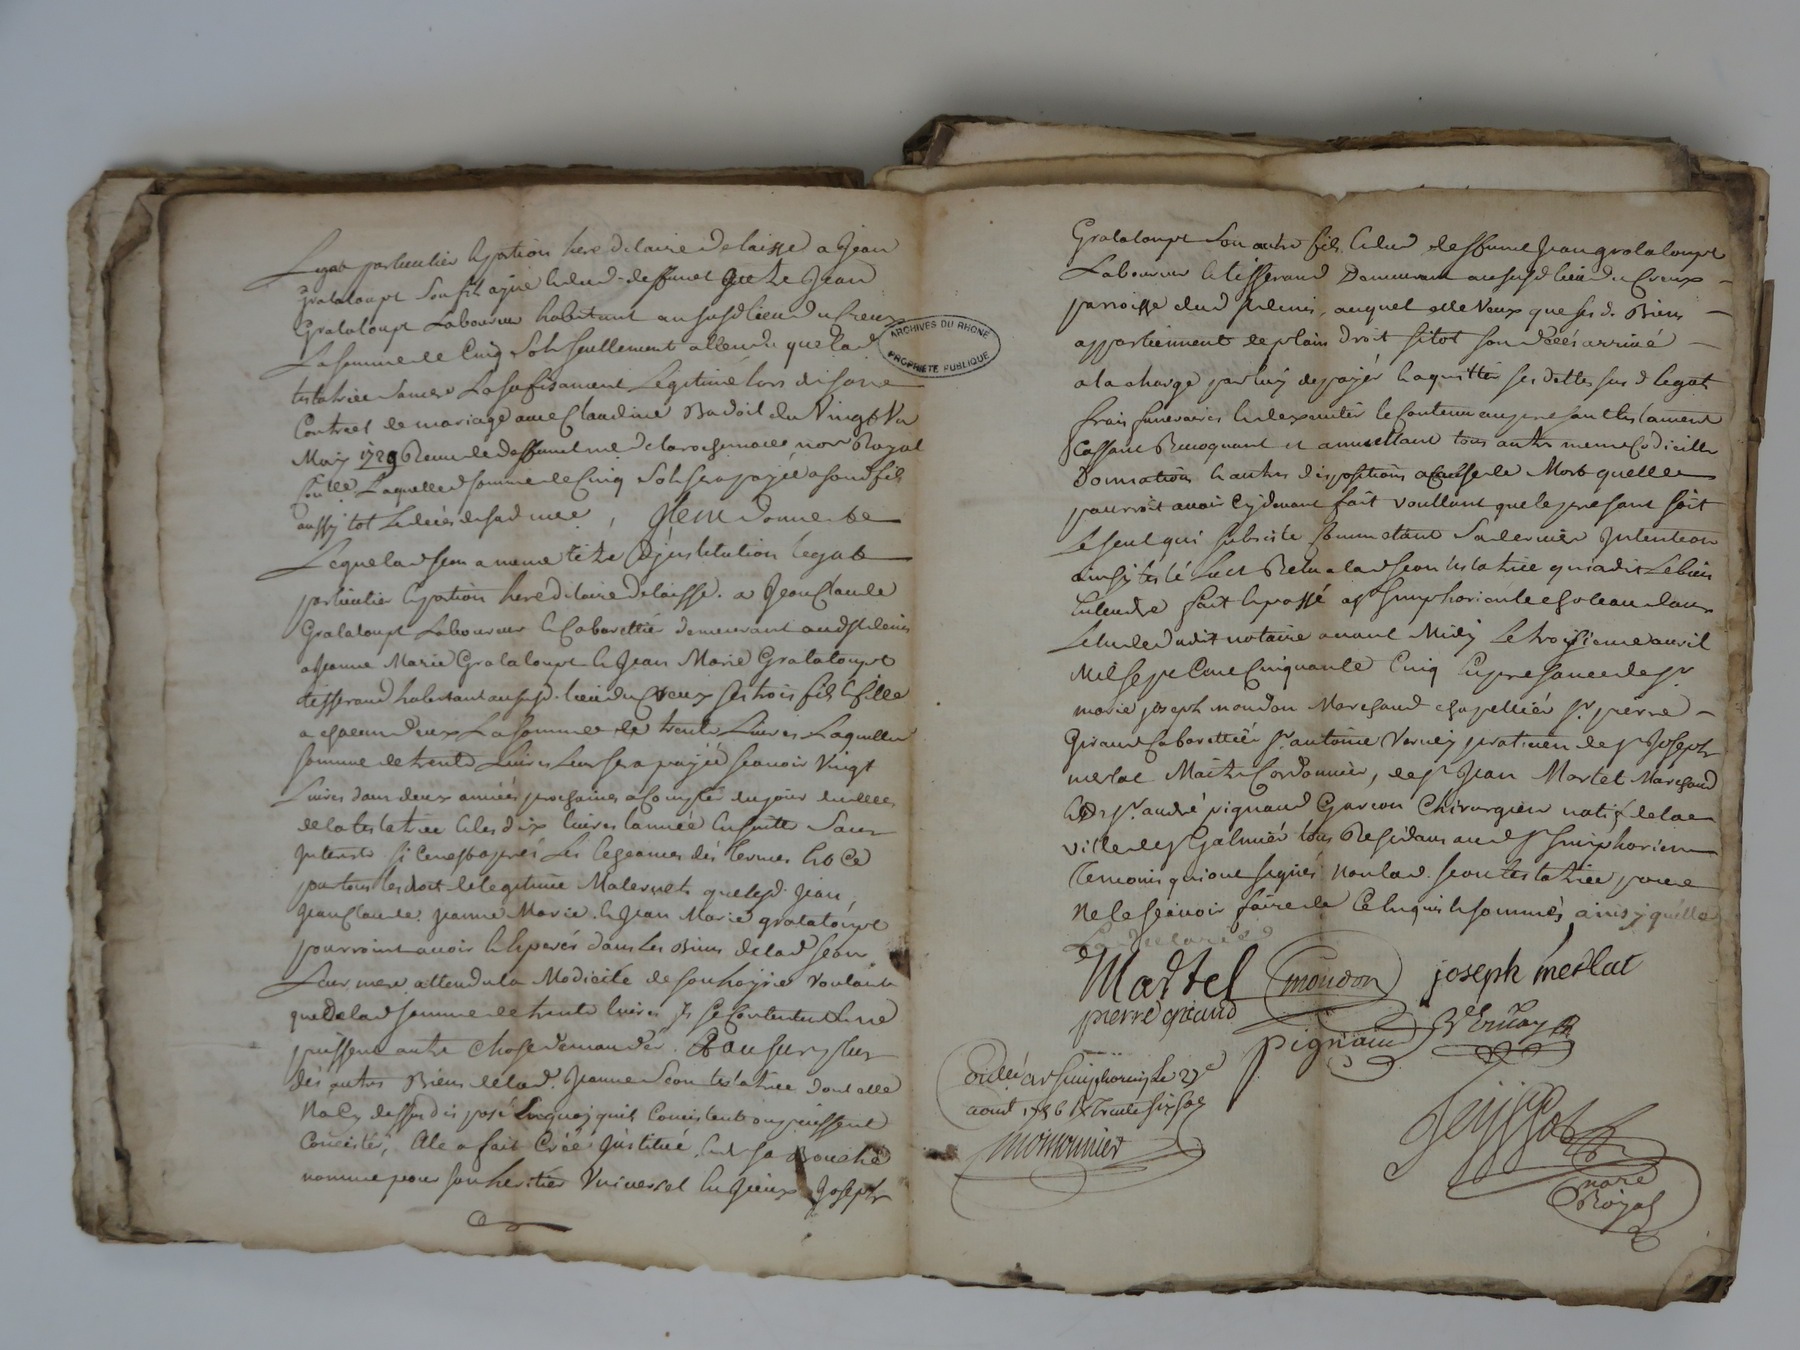 Legat particulier & portion hereditaire delaisse a Jean
Grataloupt son fils ayné & dud deffunet Jean
Grataloupt Laboureur habitant au susd lieu du Creux
La somme de Cinq Sols seullement attendu que lad
testatrice Legitimé lors de son
Contract de mariage avec Claudine Badoil du Vingt
May 1729 Receu de deffunt me notre Royal
Laquelle somme de Cinq Sols sera payée a sond fils
aussy tot le decés de sad mere, Item donne &
Legue lad a meme titre d'institution legat
particulier & portion hereditaire delaisse a Jean Claude
Grataloupt Laboureur & Cabarettier demeurant aud St
a Jeanne Marie Grataloupt & Jean Marie Grataloupt
tisserand habitant au susd lieu du Creux ses trois fils & fille
a chacun d'eux La somme de trente Livres Laquelle
somme de trente Livres leur sera payée scavoir Vingt
Livres dans deux années prochaines a Compter du jour du deces
de la testatrice & les dix livres l'année ensuitte Sans
Interets si ce n'est apres les dés termes & ce
pour tous les droit de legitime Maternels que lesd Jean,
Jean Claude, Jeanne Marie, & Jean Marie grataloupt
pourroint avoir & esperés dans les Biens de lad
Leur mere attendu la Modicité de son hoyrie Voulant
que de lad somme de trente livres Ils se Contentent & ne
puissent autre chose demander. Et au surplus
des autres Biens de lad. Jeanne testatrice dont elle
N'a cy dessus disposé en quoy qu'ils Concistent ou puissent
Concister, Elle a fait Créé Institué, & de sa Bouche
nommé pour son heritier Universel Joseph
ARCHIVES DU RHONE
PROPRIETE PUBLIQUE
Grataloupt Son autre fils & dud deffunt Jean grataloupt
Laboureur & tisserand Demeurant au susd lieu du Creux
parroisse dud St, auquel elle Veux que ses d. Biens
appartiennent de plain droit sitot son décés arrivé
a la charge par luy de payér & aquitter ses dettes susd legat
frais funeraires & d'executer le Contenu au present testament
Cassant Revoquant et annullant tous autres Codicille
Donnation & autres dispositions a Cause de Mort quelle
pourroit avoir Cy devant fait voullant que le present soit
Le seul qui subciste Comme etant Sa derniere Intention
ainsy testé Leu & Releu a lad testatrice qui a dit Le bien
Entendre fait & passé a St Simphorien le chateau dans
L'etude dudit notaire avant Midy Le troisieme avril
Mil Sept Cent Cinquante Cinq En presance de Sr
marie joseph moudon Marchand chapellier Sr pierre
Giraud Cabarettier Sr antoine Verney praticien de Sr Joseph
merlat Maitre Cordonnier, de Sr Jean Martel Marchand
& de Sr. andré pignaud Garcon Chirurgien natif de la
ville de St Galmier tous Residans aud St Simphorien
Temoins qui ont signés non lad testatrice pour
Ne le scavoir faire de Ce Enquis & sommés, ainsy quelle
Martel moudon joseph merlat
pierre giraud
pignaud Verney
Collé a St Simphorien le 27e
aout 1756 Rx Trente six sols
monnier
notre
Royal